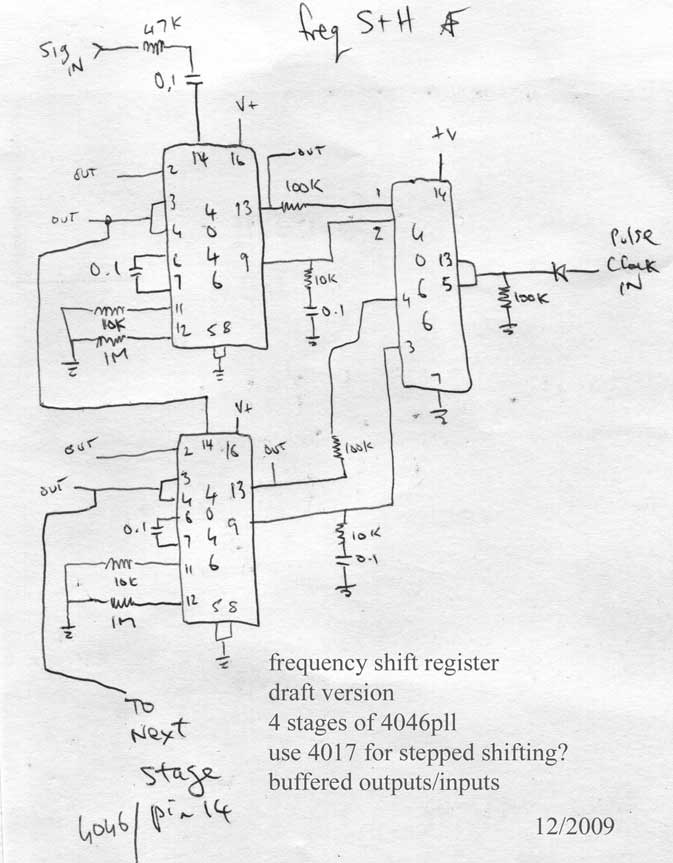 freq S+H
47K
Sig IN
0,1
V+
14 16
2
OUT
OUT
100K
3
4
OUT
4046
13
9
6
7
0.1
11
12
10K
1M
5 8
10K
0.1
+V
14
1
2
4066
13
5
4
3
7
Pulse
Clock
IN
100K
100K
V+
14 16
2
OUT
OUT
3
4
OUT
4046
13
9
6
7
0.1
11
12
10K
1M
5 8
10K
0.1
TO
Next
stage
4046/pin 14
frequency shift register
draft version
4 stages of 4046pll
use 4017 for stepped shifting?
buffered outputs/inputs
12/2009